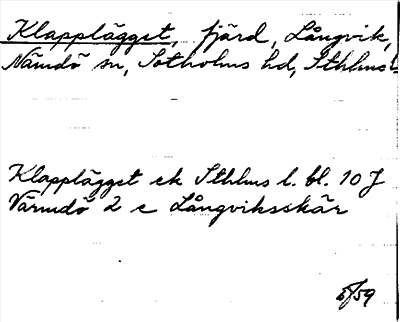 Klappläggst, fjärd, Långvik,
Nämdö sn, Sotholms hd, Sthlms l.
Klappläggst ek Sthlms l. bl. 10 J
Värmdö 2 c Långviksskär
/59